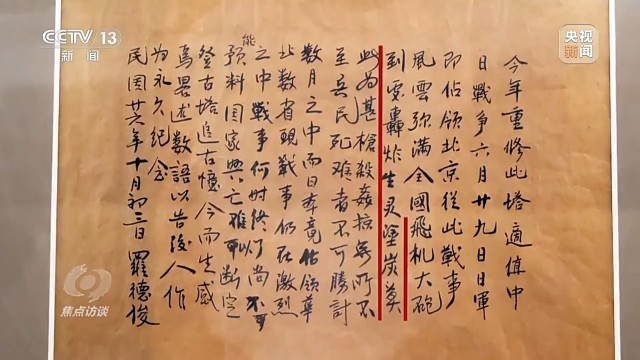 CCTV 13
新闻
央视新闻
今年重修此塔適值中
日戰争六月廿九日日軍
即佔領北京從此戰事
風雲弥滿全國飛机大砲
到処轟炸生灵塗炭莫
此为甚槍殺姦掠無所不
至兵民死难者不可勝計
数月之中而日本竟佔領華
北数省現戰事仍在激烈
之中戰事何时終了尚不能
預料国家興亡难以断定
登古塔追古憶今而生感
焉畧述数語以告後人作
为永久纪念
民国廿六年十月初三日 羅德俊
焦点访谈